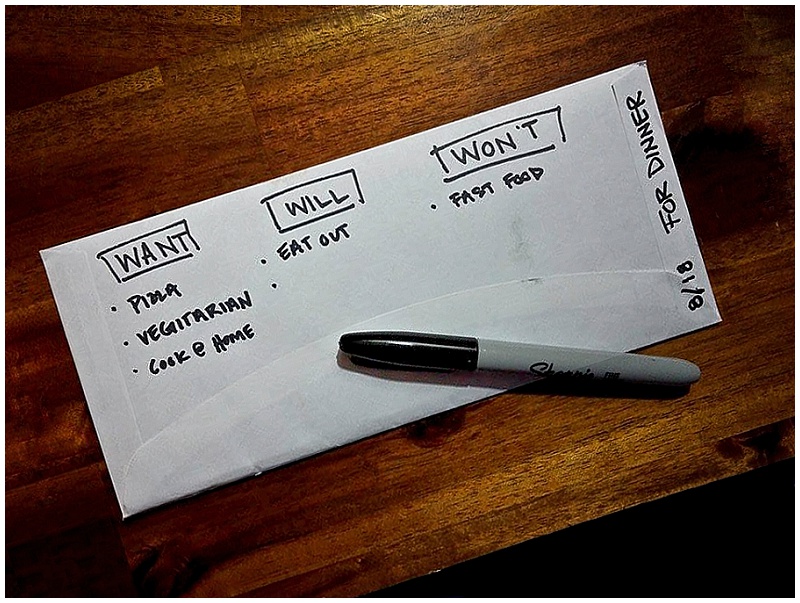 WANT
• PIZZA
• VEGITARIAN
• COOK @ HOME
WILL
• EAT OUT
•
WON'T
• FAST FOOD
8/18 FOR DINNER
Sharpie